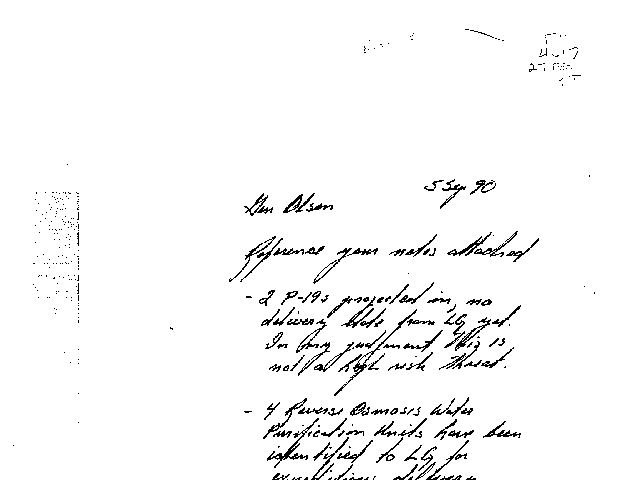 5 Sep 90
Gen Olsen
Reference your notes attached
- 2 P-19s projected in, no
delivery date from LG yet.
In my judgment this is
not a high risk threat.
- 4 Reverse Osmosis Water
Purification Units have been
identified to LG for
expeditious delivery